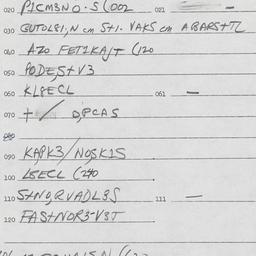 020 P1CM3NO·S(002 021 —
030 GUTOL81,N cm S+1. VAKS cm ABARS+TL
040 AZO FET1KA,T (120
050 PODES+V3
060 KL8ECL 061 —
070 + / D,PCAS
080
090 KAPK3/NOSK1S
100 L8ECL (240
110 S+NO,RVADL3S 111 —
120 FAS+NOR3-V3T